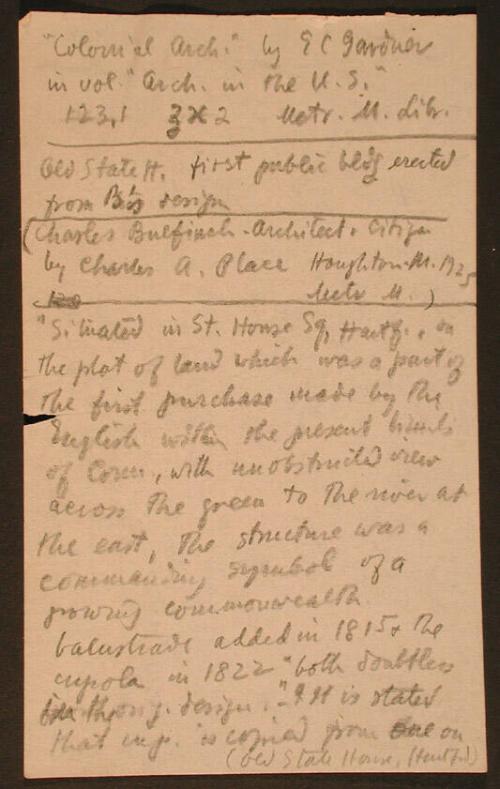 "Colonial Arch." by E C Gardner
in vol. "Arch. in the U.S."
123.1 3x2 Metr. M. Libr.
Old State H. first public bldg erected
from B's design
(Charles Bulfinch - Architect & Citizen
by Charles A. Place Houghton-M. 1925
Metr M.)
"Situated in St. House Sq, Hartf., on
the plot of land which was a part of
the first purchase made by the
English within the present limits
of Conn., with unobstructed view
across the green to the river at
the east, the structure was a
commanding symbol of a
growing commonwealth.
balustrade added in 1815 & the
cupola in 1822 "both doubtless
in the orig. design." It is stated
that cup. is copied from one on
(Old State House, Hartford)